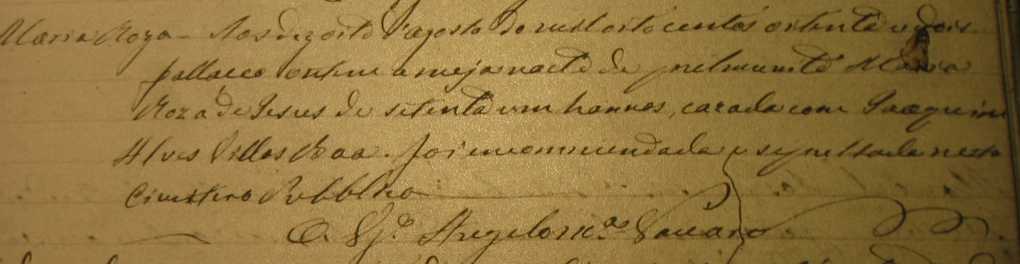 Maria Roza - Aos dezoito d'agosto de mil oito centos oitenta e dois
falleceo ontem a meja noite de Maria
Roza de Jesus de setenta um hannos, cazada com Joaquim
Alves Villas Boa. foi encommendada e sepultada neste
Cimitero Pubblico
O Vigº